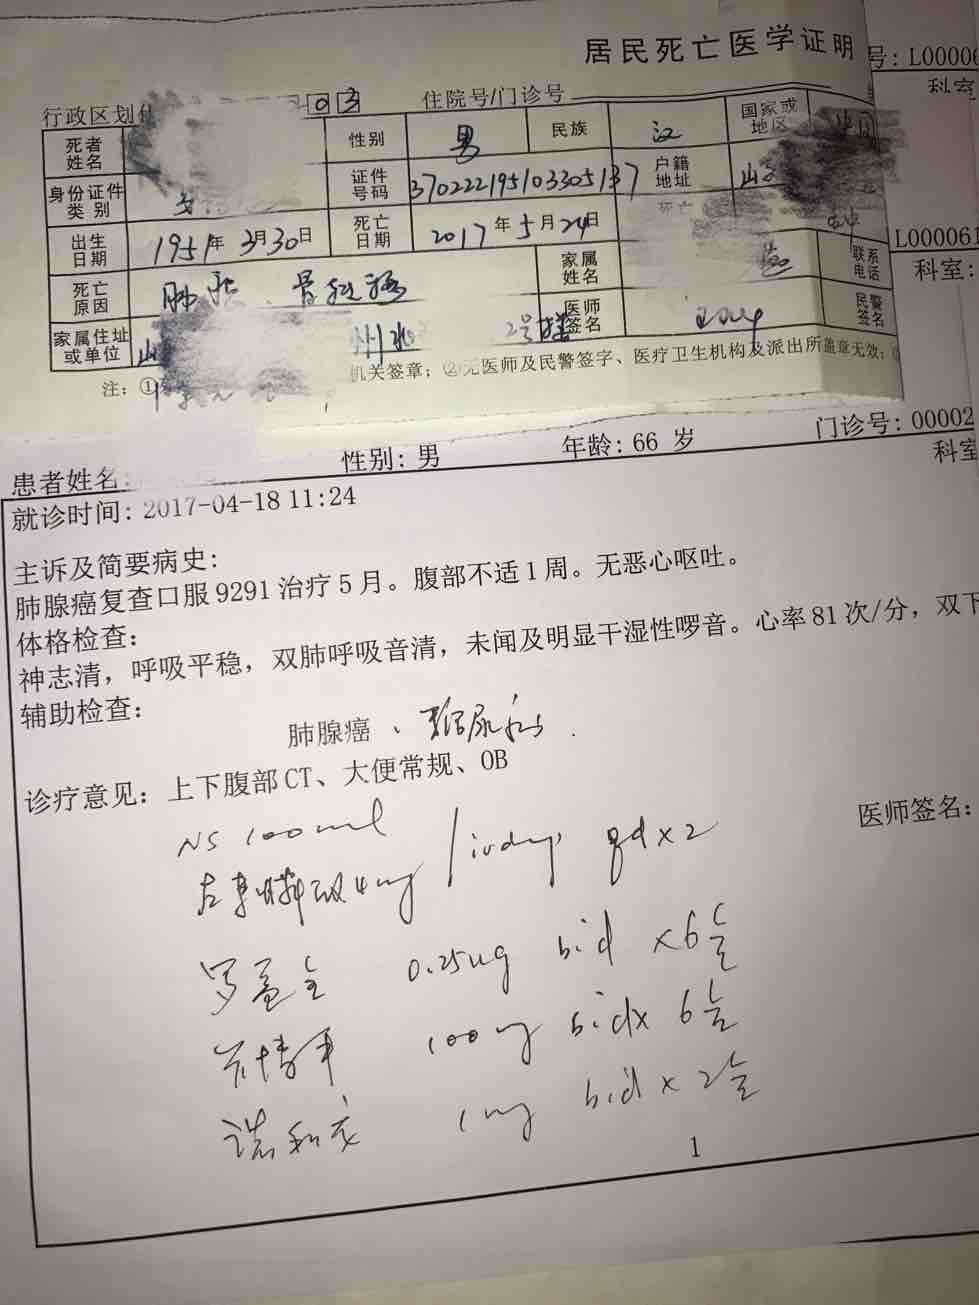 居民死亡医学证明
号: L00006
科室
行政区划 03 住院号/门诊号
死者姓名 性别 男 民族 汉 国家或地区
身份证件类别 证件号码 户籍地址 山
出生日期 1951年3月30日 死亡日期 2017年5月24日 死亡
L0000061
科室:
死亡原因 肺癌、骨转移 家属姓名 联系电话
家属住址或单位 2号楼 医师签名 民警签名
注: ① 机关签章; ②无医师及民警签字、医疗卫生机构及派出所盖章无效;
患者姓名: 性别: 男 年龄: 66 岁 门诊号: 00002
科室
就诊时间: 2017-04-18 11:24
主诉及简要病史:
肺腺癌复查口服 9291 治疗 5 月。腹部不适 1 周。无恶心呕吐。
体格检查:
神志清, 呼吸平稳, 双肺呼吸音清, 未闻及明显干湿性啰音。心率 81 次/分, 双下
辅助检查:
肺腺癌、糖尿病.
诊疗意见: 上下腹部 CT、大便常规、OB
医师签名:
NS 100ml
4mg / ivdrip qd×2
罗盖全 0.25ug bid ×6盒
100mg bid× 6盒
诺和龙 1mg bid × 2盒
1